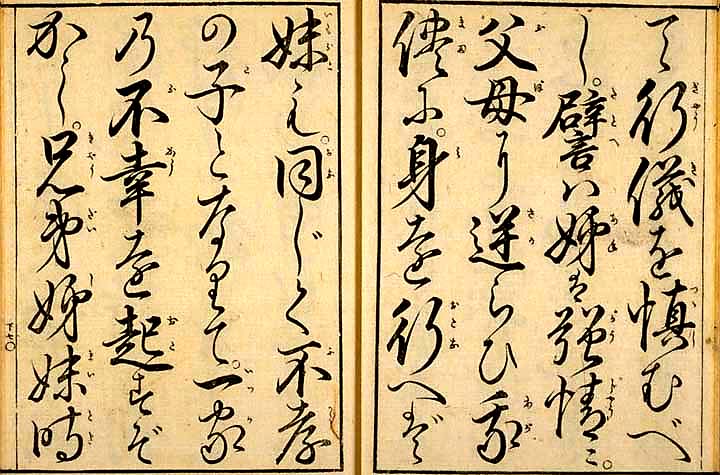 て行儀を慎むべ
し。譬ハ姉は強情に。
父母に逆らひ我
儘に身を行へば
妹も。同じく不孝
の子となりて。一家
の不幸を起すぞ
かし。兄弟姉妹時